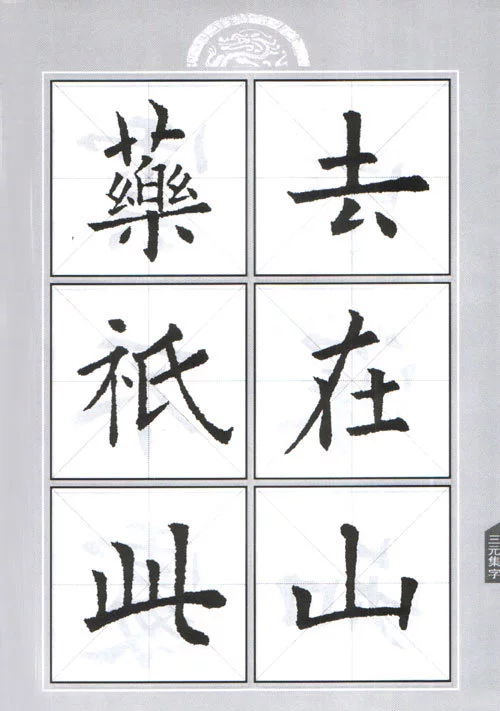 藥去
祇在
此山
三元集字